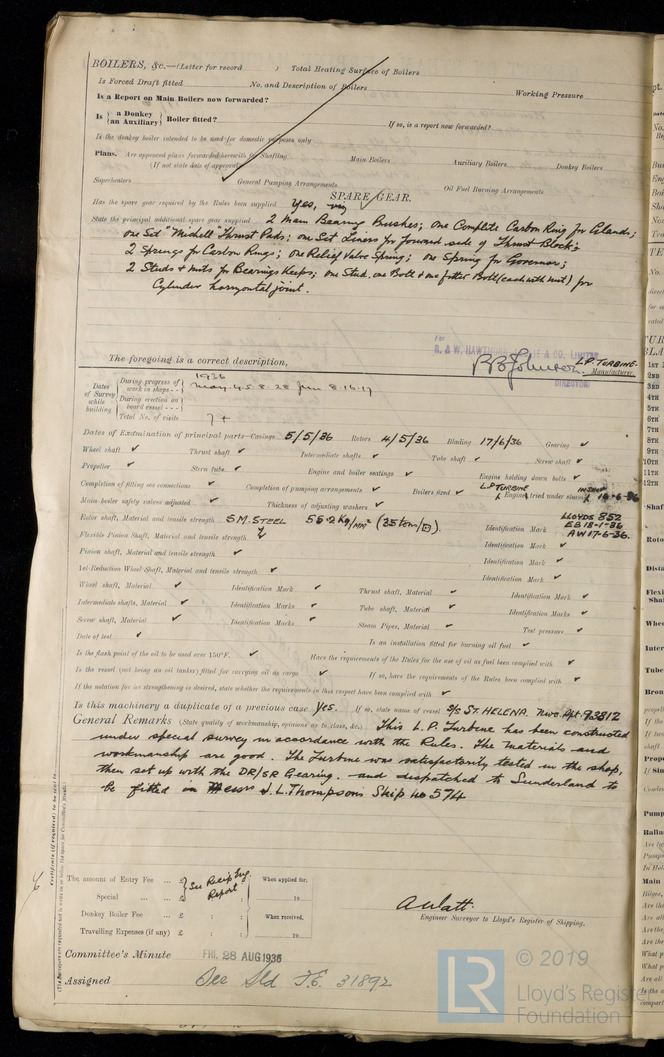 BOILERS, &c.—(Letter for record ) Total Heating Surface of Boilers
Is Forced Draft fitted No. and Description of Boilers Working Pressure
Is a Report on Main Boilers now forwarded?
Is { a Donkey / an Auxiliary } Boiler fitted? If so, is a report now forwarded?
Is the donkey boiler intended to be used for domestic purposes only
Plans. Are approved plans forwarded herewith for Shafting Main Boilers Auxiliary Boilers Donkey Boilers
(If not state date of approval)
Superheaters General Pumping Arrangements Oil Fuel Burning Arrangements
SPARE GEAR.
Has the spare gear required by the Rules been supplied Yes,
State the principal additional spare gear supplied 2 Main Bearing Bushes; one Complete Carbon Ring for Glands;
one Set "Michell" Thrust Pads; one Set Liners for forward side of Thrust Block;
2 Springs for Carbon Rings; one Relief Valve Spring; one Spring for Governor;
2 Studs & nuts for Bearings Keeps; one Stud. one Bolt & one fitter Bolt (each with nut) for
Cylinder horizontal joint.
For
R. & W. HAWTHORN LESLIE & CO. LIMITED
The foregoing is a correct description, L.P. TURBINE
Manufacturer.
DIRECTOR
Dates of Survey while building
During progress of work in shops - - 1936 May. 4. 5. 8. 28 Jun 8. 16. 17
During erection on board vessel - - -
Total No. of visits 7 +
Dates of Examination of principal parts—Casings 5/5/36 Rotors 4/5/36 Blading 17/6/36 Gearing ✓
Wheel shaft ✓ Thrust shaft ✓ Intermediate shafts ✓ Tube shaft ✓ Screw shaft ✓
Propeller ✓ Stern tube ✓ Engine and boiler seatings ✓ Engine holding down bolts ✓
Completion of fitting sea connections ✓ Completion of pumping arrangements ✓ Boilers fixed ✓ L.P TURBINE Engines tried under steam IN SHOP 16-6-36
Main boiler safety valves adjusted ✓ Thickness of adjusting washers ✓
Rotor shaft, Material and tensile strength S M. STEEL 55·2 kg/mm² (35 ton/□") Identification Mark LLOYDS 852
EB 18-1-36
AW 17-6-36.
Flexible Pinion Shaft, Material and tensile strength ✓ Identification Mark ✓
Pinion shaft, Material and tensile strength ✓ Identification Mark ✓
1st Reduction Wheel Shaft, Material and tensile strength ✓ Identification Mark ✓
Wheel shaft, Material ✓ Identification Mark ✓ Thrust shaft, Material ✓ Identification Mark ✓
Intermediate shafts, Material ✓ Identification Marks ✓ Tube shaft, Material ✓ Identification Marks ✓
Screw shaft, Material ✓ Identification Marks ✓ Steam Pipes, Material ✓ Test pressure ✓
Date of test ✓ Is an installation fitted for burning oil fuel ✓
Is the flash point of the oil to be used over 150°F. ✓ Have the requirements of the Rules for the use of oil as fuel been complied with ✓
Is the vessel (not being an oil tanker) fitted for carrying oil as cargo ✓ If so, have the requirements of the Rules been complied with ✓
If the notation for ice strengthening is desired, state whether the requirements in this respect have been complied with ✓
Is this machinery a duplicate of a previous case Yes. If so, state name of vessel S/S ST. HELENA. Nwc. Rpt. 93812
General Remarks (State quality of workmanship, opinions as to class, &c.) This L.P. Turbine has been constructed
under special survey in accordance with the Rules. The materials and
workmanship are good. The Turbine was satisfactorily tested in the shop,
then set up with the DR/SR Gearing. and despatched to Sunderland to
be fitted in Messrs J. L. Thompson's Ship No 574
Certificate (if required) to be sent to
The amount of Entry Fee ... £ See Recip Eng. Report When applied for,
Special ... ... £ : : 19
Donkey Boiler Fee ... £ : : When received,
Travelling Expenses (if any) £ : : 19
A Watt.
Engineer Surveyor to Lloyd's Register of Shipping.
Committee's Minute FRI. 28 AUG 1936
Assigned See Sld F.E. 31892
LR © 2019
Lloyd's Register
Foundation